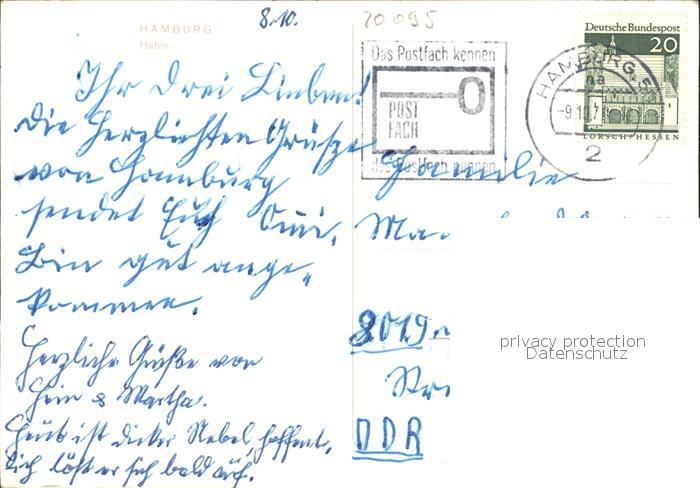 HAMBURG
Hafen
8.10.
20 095
Deutsche Bundespost
20
LORSCH/HESSEN
Das Postfach kennen
POST
FACH
das Postfach nennen
HAMBURG
-9.10.7
2
Ihr Drei Lieben!
Die Herzlichsten Grüße
von Hamburg
sendet Euch Omi.
Bin gut ange-
kommen.
Herzliche Grüße von
Hein & Martha.
Heute ist dicker Nebel, hoffent-
lich löst er sich bald auf.
Familie
8019
DDR
privacy protection
Datenschutz